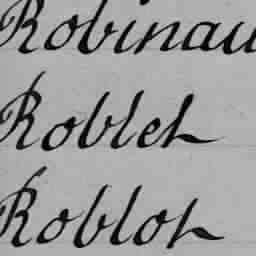 Robinau
Roblet
Roblot